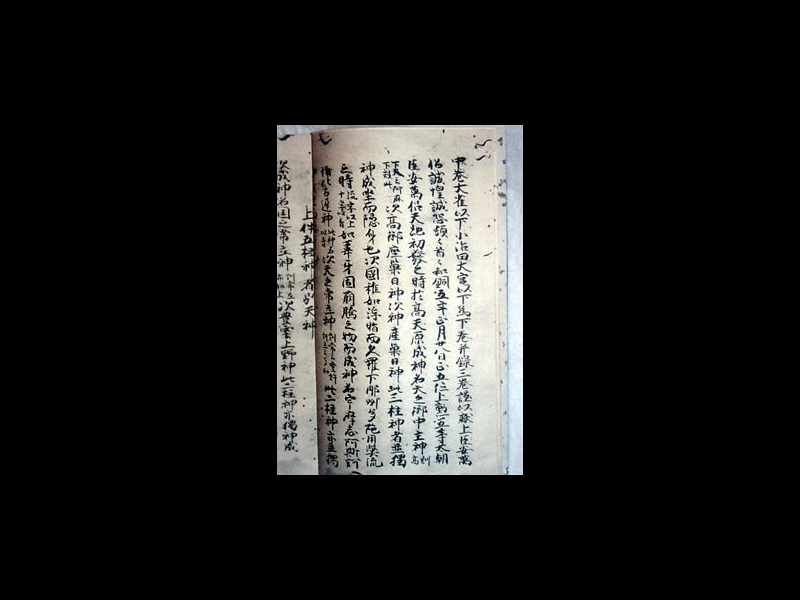 中卷大雀以下小治田大宮以下為下卷并錄三卷謹以獻上臣安萬
侶誠惶誠恐頓々首々和銅五年正月廿八日正五位上勲五等太朝
臣安萬侶天地初發之時於高天原成神名天之御中主神訓高
下天云阿麻下效此次高御產巢日神次神產巢日神此三柱神者並獨
神成坐而隱身也次國稚如浮脂而久羅下那州多陀用幣流
之時流字以上十字以音如葦牙因萌騰之物而成神名宇摩志阿斯訶
備比古遲神此神名以音次天之常立神訓常云訓立云此二柱神亦並獨
上件五柱神者別天神
次成神名國之常立神訓常立亦如上次豐雲上野神此二柱神亦獨神成